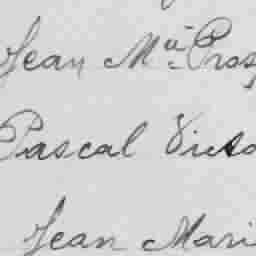 Jean Mª Pros
Pascal Victo
Jean Mari